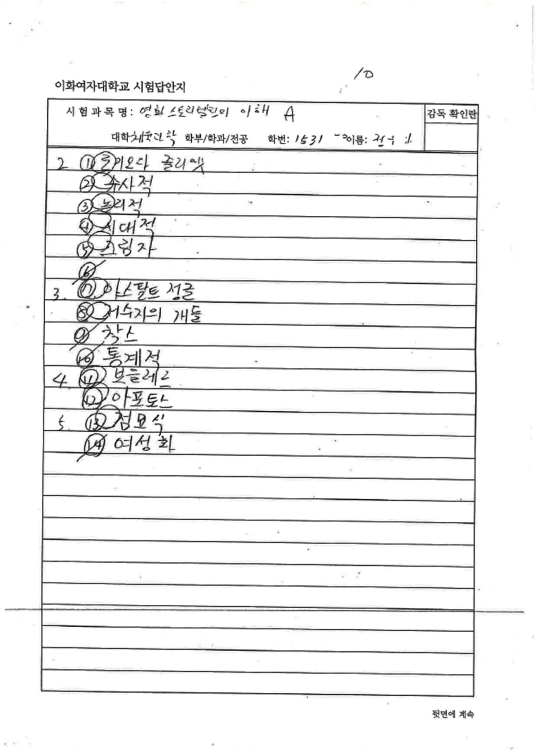 10
이화여자대학교 시험답안지
시험과목명: 영화 스토리텔링의 이해 A
감독 확인란
대학 학부/학과/전공 학번: 1531 이름:
2 ① 줄리엣
② 수사적
③ 논리적
④ 시대적
⑤ 그림자
⑥
3. ⑦ 아스팔트 정글
⑧ 저수지의 개들
⑨ 찰스
⑩ 통계적
4 ⑪ 보들레르
⑫ 아포토
5. ⑬ 점묘식
⑭ 여성화
뒷면에 계속